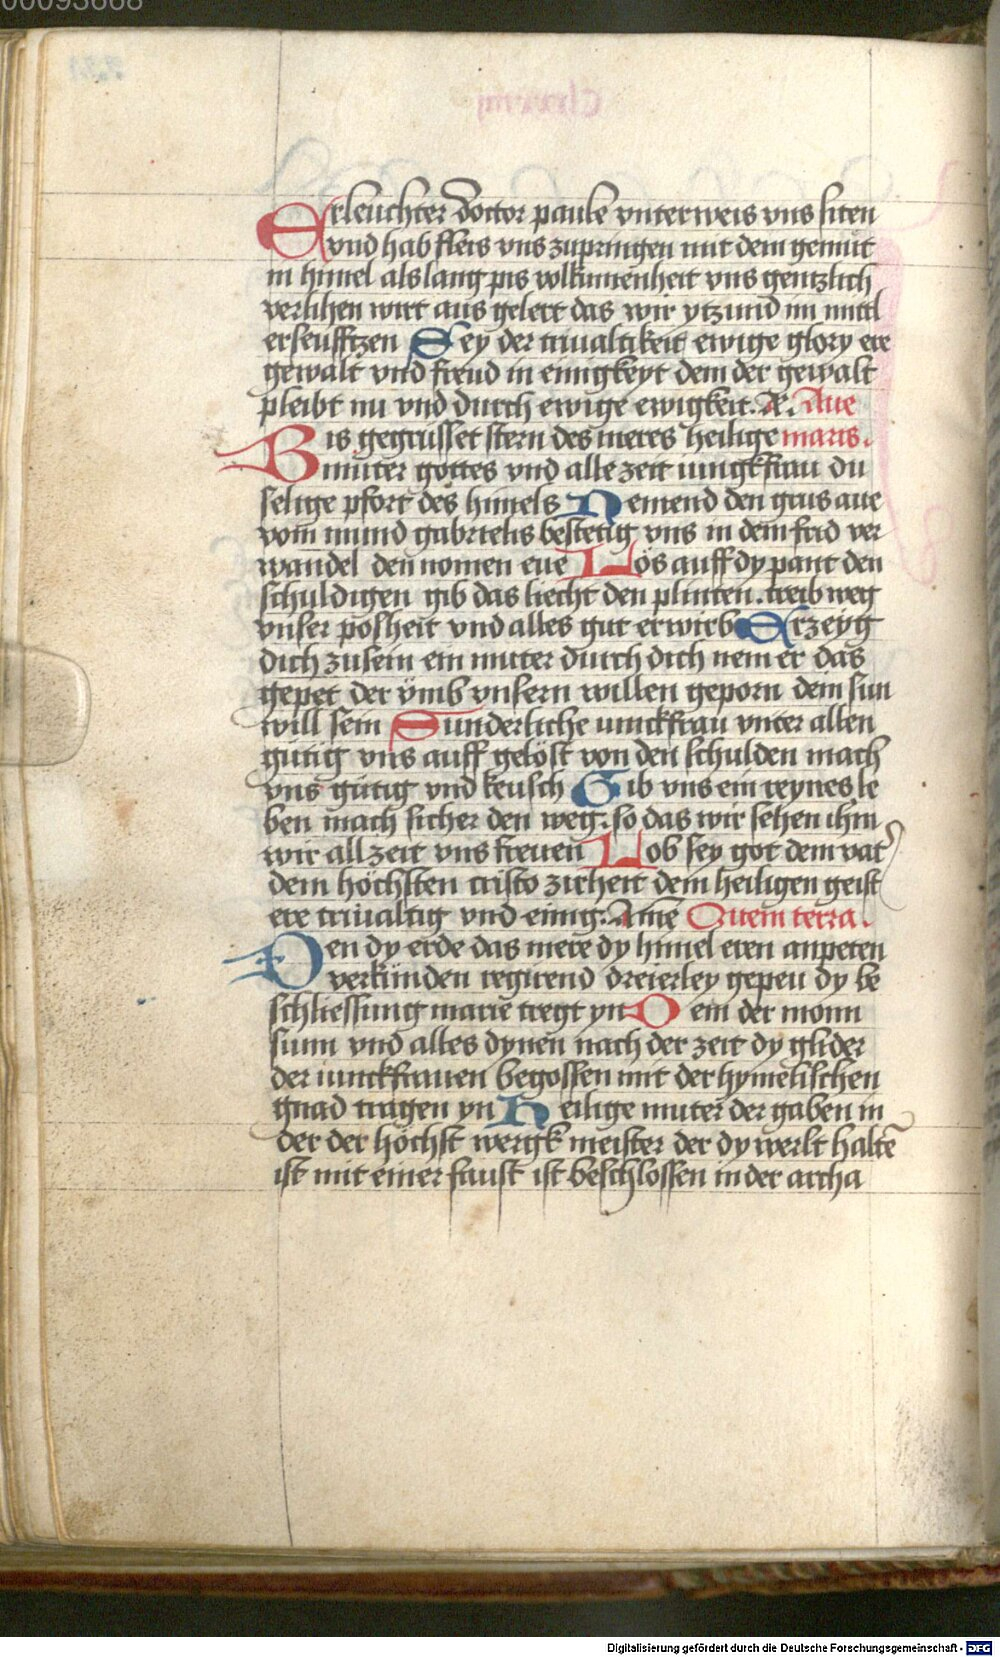 00093668
Erleuchter doctor paule vnterweis vns siten
vnd hab fleis vns zupringen mit dem gemüt
in himel als lang pis volkumenheit vns gentzlich
verlihen wirt aus gelert das wir ytzund im mittl
erseufftzen Sey der triualtikeit ewige glory ere
gewalt vnd freud in einigkeyt dem der gewalt
pleibt nu vnd durch ewige ewigkeit. Ae. Aue
Bis gegrüsset stern des meres heilige maris.
muter gottes vnd alle zeit iungkfrau du
selige pfort des himels Nemend den grus aue
vom mund gabrielis bestetig vns in dem frid ver
wandel den nomen eue Lös auff dy pant den
schuldigen gib das liecht den plinten. treib weg
vnser posheit vnd alles gut erwirb Erzeyg
dich zusein ein muter durch dich nem er das
gepet der ymb vnsern willen geporn dein sun
will sein Sunderliche iunckfrau vnter allen
gütig vns auff gelöst von den schulden mach
vns gütig vnd keusch Gib vns ein reynes le
ben mach sicher den weg. so das wir sehen ihm
wir allzeit vns freuen Lob sey got dem vat
dem höchsten cristo zirheit dem heiligen geist
ere triualtig vnd einig. Ame Quem terra.
Den dy erde das mere dy himel eren anpeten
verkünden regirend dreierley gepeu dy be
schliessung marie tregt yn Dem der monn
sunn vnd alles dynen nach der zeit dy glider
der iunckfrauen begossen mit der hymelischen
gnad tragen yn Heilige muter der gaben in
der der höchst wergk meister der dy werlt halte
ist mit einer faust ist beschlossen in der archa
Digitalisierung gefördert durch die Deutsche Forschungsgemeinschaft - DFG